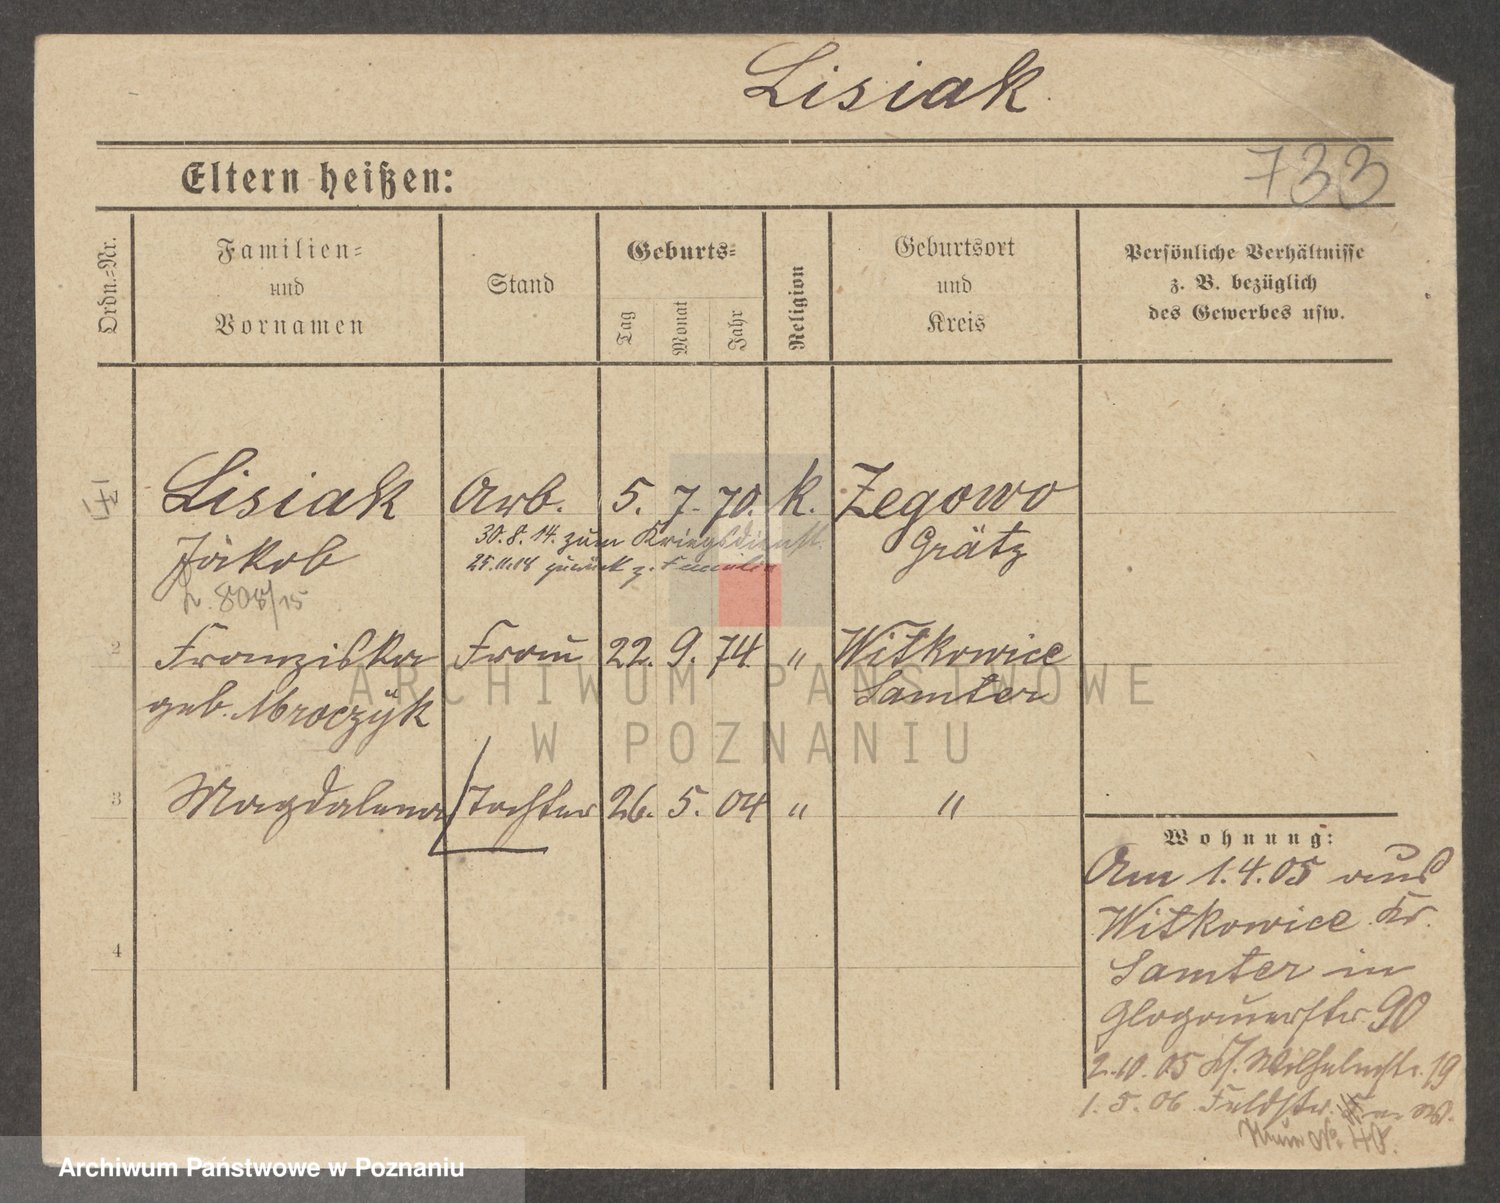 Lisiak
733
Eltern heißen:
Ordn.-Nr.
Familien-
und
Vornamen
Stand
Geburts-
Tag
Monat
Jahr
Religion
Geburtsort
und
Kreis
Persönliche Verhältnisse
z. B. bezüglich
des Gewerbes usw.
Lisiak Arb. 5. 7. 70. K. Zegowo
Jakob Grätz
30. 8. 14. zum Kriegsdienst
25.11.18 zurück z. Familie
808/15
2 Franziska Frau 22. 9. 74 " Witkowice
geb. Mroczyk Samter
3 Magdalena Tochter 26. 5. 04 " "
4
Wohnung:
Am 1.4.05 aus
Witkowice Kr.
Samter in
Glogauerstr. 90
2.10.05 Kl. Wilhelmstr. 19
1. 5. 06 Feldstr.
40.
ARCHIWUM PAŃSTWOWE
W POZNANIU
Archiwum Państwowe w Poznaniu